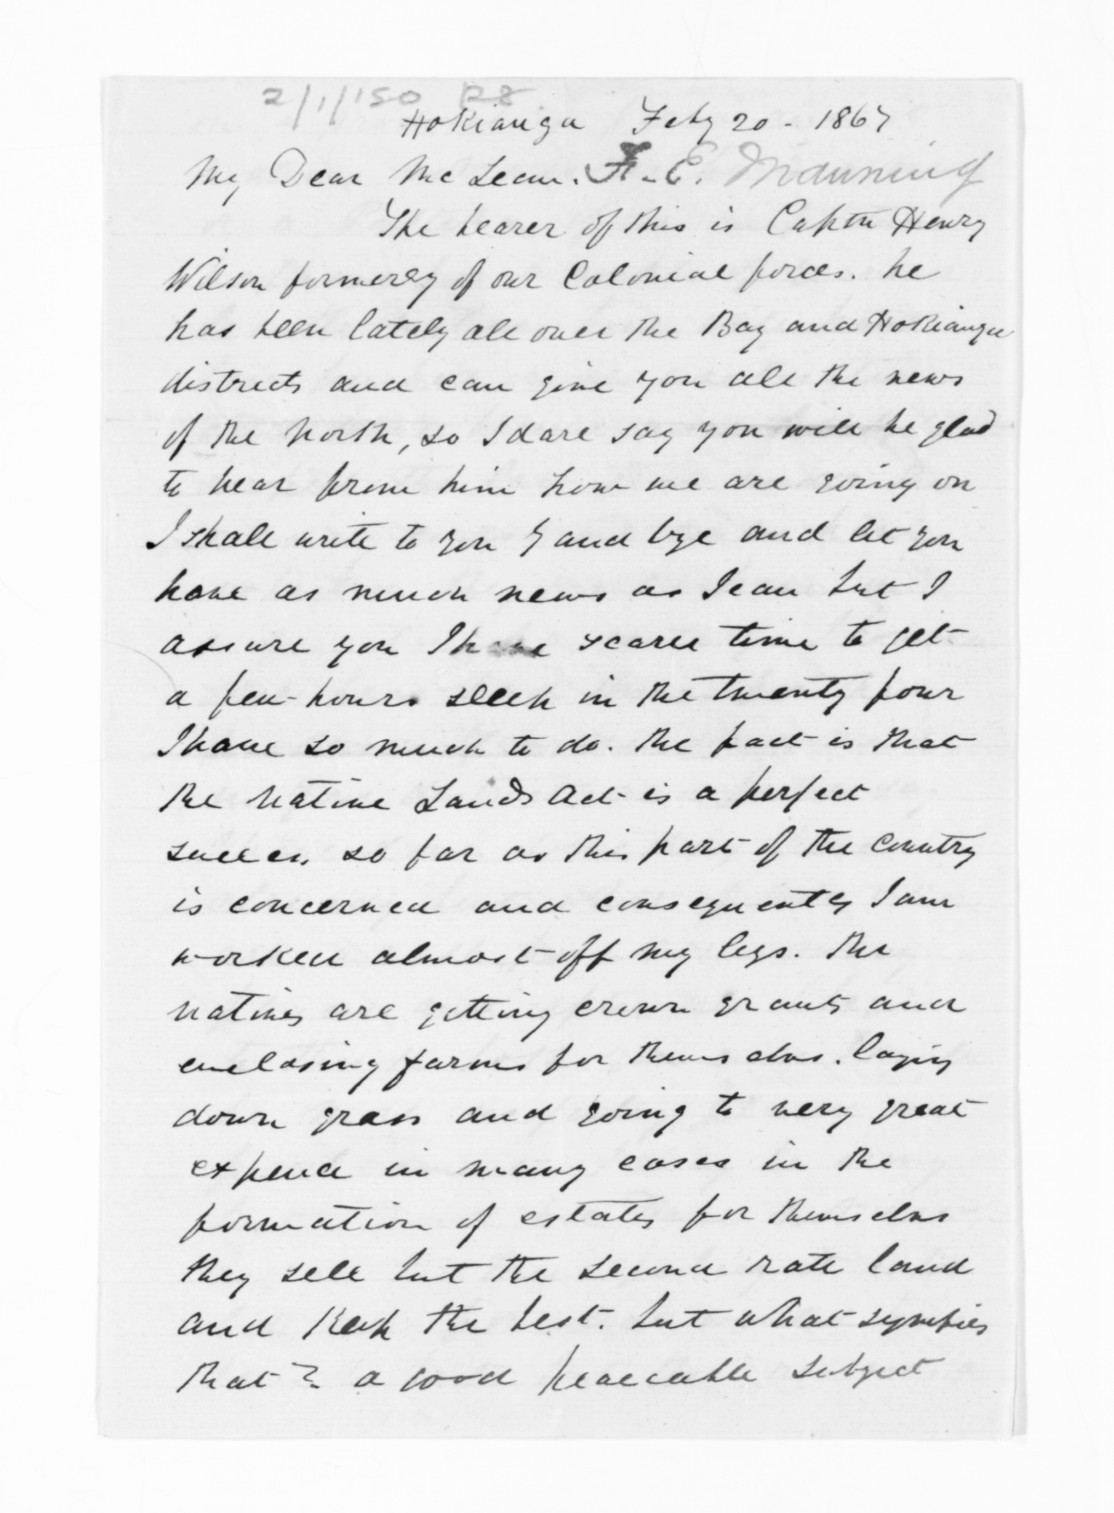 2/1/150 P8
Hokianga Feby 20 - 1867
My Dear McLean. F. E. Manning
The bearer of this is Captn Henry
Wilson formerly of our Colonial forces. he
has been lately all over the Bay and Hokianga
districts and can give you all the news
of the North, so I dare say you will be glad
to hear from him how we are going on
I shall write to you by and bye and let you
have as much news as I can but I
assure you I have scarce time to get
a few hours sleep in the twenty four
I have so much to do. the fact is that
the Native Lands Act is a perfect
success, so far as this part of the country
is concerned and consequently I am
worked almost off my legs. the
natives are getting crown grants and
enclosing farms for themselves. laying
down grass and going to very great
expence in many cases in the
formation of estates for themselves
they sell but the second rate land
and keep the best. but what signifies
that? a good peaceable subject